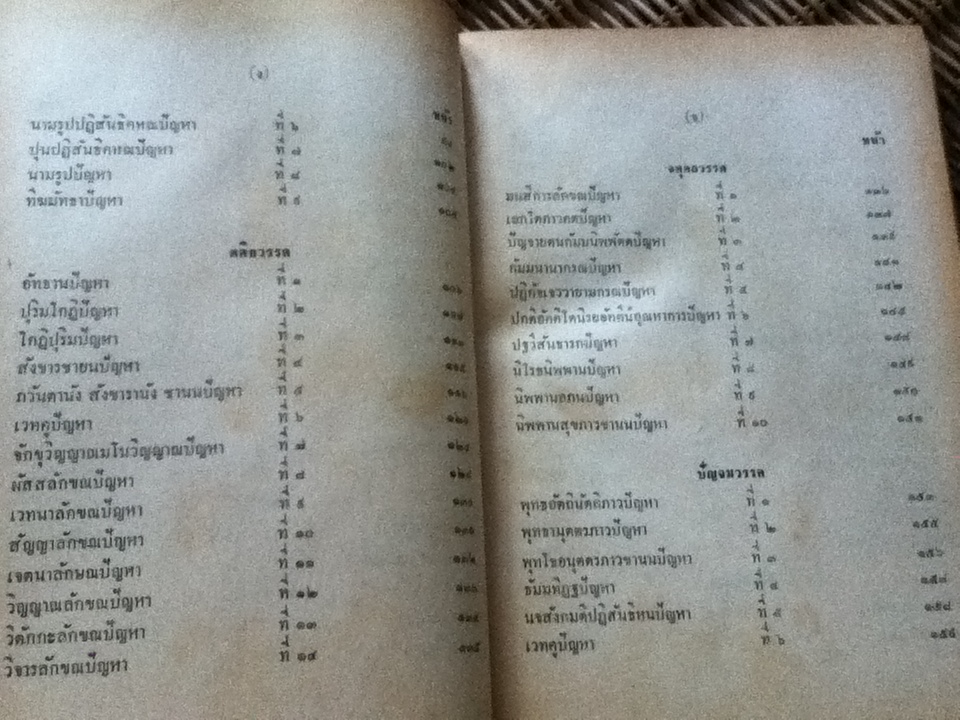 (ง)
หน้า
นามรูปปฏิสันธิคหณปัญหา ที่ ๖
ปุนปฏิสันธิคหณปัญหา ที่ ๗ ๑๐๒
นามรูปปัญหา ที่ ๘
ทีฆมัทธาปัญหา ที่ ๙
ตติยวรรค
อัทธานปัญหา ที่ ๑ ๑๐๖
ปุริมโกฏิปัญหา ที่ ๒
โกฏิปุริมปัญหา ที่ ๓ ๑๑๐
สังขารชายนปัญหา ที่ ๔
ภวันตานัง สังขารานัง ชานนปัญหา ที่ ๕
เวทคูปัญหา ที่ ๖
จักขุวิญญาณมโนวิญญาณปัญหา ที่ ๗
ผัสสลักขณปัญหา ที่ ๘
เวทนาลักขณปัญหา ที่ ๙
สัญญาลักขณปัญหา ที่ ๑๐
เจตนาลักษณปัญหา ที่ ๑๑
วิญญาณลักขณปัญหา ที่ ๑๒
วิตักกะลักขณปัญหา ที่ ๑๓
วิจารลักขณปัญหา ที่ ๑๔ ๑๓๕
(จ)
หน้า
จตุตถวรรค
มนสิการลักขณปัญหา ที่ ๑ ๑๓๖
เอกโตภาวคตปัญหา ที่ ๒ ๑๓๗
ปัญจายตนกัมมนิพพัตตปัญหา ที่ ๓ ๑๓๙
กัมมนานากรณปัญหา ที่ ๔ ๑๔๑
ปฏิกัจเจววายามกรณปัญหา ที่ ๕ ๑๔๒
ปกติอัคคิโตนิรยอัคคินังอุณหาการปัญหา ที่ ๖ ๑๔๕
ปฐวีสันธารกปัญหา ที่ ๗ ๑๔๘
นิโรธนิพพานปัญหา ที่ ๘ ๑๔๙
นิพพานลภนปัญหา ที่ ๙ ๑๕๑
นิพพานสุขภาวชานนปัญหา ที่ ๑๐ ๑๕๑
ปัญจมวรรค
พุทธอัตถินัตถิภาวปัญหา ที่ ๑ ๑๕๓
พุทธานุตตรภาวปัญหา ที่ ๒ ๑๕๕
พุทโธอนุตตรภาวชานนปัญหา ที่ ๓ ๑๕๖
ธัมมทิฏฐปัญหา ที่ ๔
นจสังกมติปฏิสันธิหนปัญหา ที่ ๕ ๑๕๘
เวทคูปัญหา ที่ ๖